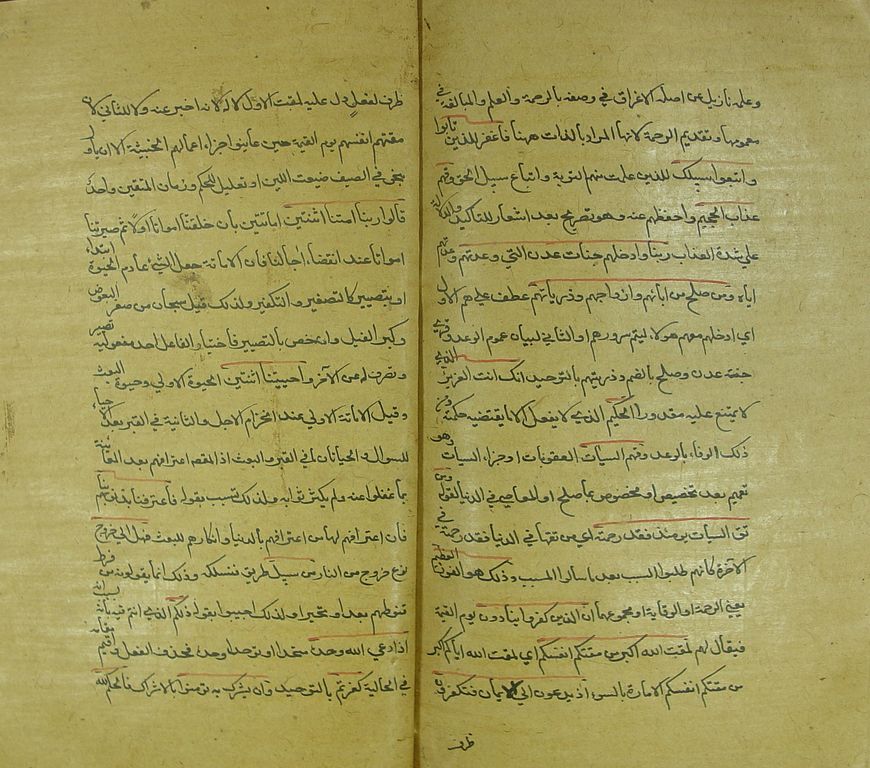 وعلمه فازيل عن اصله الاغراق في وصفه بالرحمة والعلم والمبالغة في
عمومها وتقديم الرحمة لانها المراد بالذات ههنا فاغفر للذين تابوا
واتبعوا سبيلك للذين علمت منهم التوبة واتباع سبيل الحق وقهم
عذاب الجحيم واحفظهم عنه وهو تصريح بعد اشعار للتاكيد والدلالة
على شدة العذاب ربنا وادخلهم جنات عدن التي وعدتهم وعدتهم
اياه ومن صلح من ابائهم وازواجهم وذرياتهم عطف على هم الاول
اي ادخلهم معهم هولاء ليتم سرورهم او الثاني لبيان عموم الوعد وقرئ
جنة عدن وصلح بالضم وذريتهم بالتوحيد انك انت العزيز الذي
لا يمتنع عليه مقدور الحكيم الذي لا يفعل الا ما يقتضيه حكمته ومن
ذلك الوفاء بالوعد وقهم السيات العقوبات او جزاء السيات وهو
تعميم بعد تخصيص او مخصوص بمن صلح او المعاصي في الدنيا لقوله ومن
تق السيات يومئذ فقد رحمته اي من تقها في الدنيا فقد رحمته في
الآخرة كانهم طلبوا السبب بعد ما سالوا المسبب وذلك هو الفوز العظيم
يعني الرحمة او الوقاية او مجموعهما ان الذين كفروا ينادون يوم القيمة
فيقال لهم لمقت الله اكبر من مقتكم انفسكم اي لمقت الله اياكم اكبر
من مقتكم انفسكم الامارة بالسوء اذ تدعون الى الايمان فتكفرون
ظرف
ظرف لفعل دل عليه المقت الاول لا له لانه اخبر عنه ولا للثاني لان
مقتهم انفسهم يوم القيمة حين عاينوا جزاء اعمالهم الخبيثة الا ان ياول
بنحو في الصيف ضيعت اللبن او تعليل للحكم وزمان المقتين واحد
قالوا ربنا امتنا اثنتين اماتتين بان خلقتنا امواتا اولا ثم صيرتنا
امواتا عند انقضاء اجالنا فان الاماتة جعل الشئ عادم الحيوة ابتداء
او بتصيير كالتصغير والتكبير ولذلك قيل سبحان من صغر البعوض
وكبر الفيل وان خص بالتصيير فاختيار الفاعل احد مفعوليه تصيير
وتصرف له عن الآخر واحييتنا اثنتين الحيوة الاولى وحيوة البعث
وقيل الاماتة الاولى عند انخرام الاجل والثانية في القبر بعد الاحياء
للسوال والاحياءان لما في القبر والبعث اذ المقصود اعترافهم بعد المعاينة
بما غفلوا عنه ولم يكترثوا به ولذلك تسبب بقوله فاعترفنا بذنوبنا
فان اعترافهم لها من اغترارهم بالدنيا وانكارهم للبعث فهل الى خروج
نوع خروج من النار من سبيل طريق فنسلكه وذلك انما يقولونه من فرط
قنوطهم تعللا وتحيرا ولذلك اجيبوا بقوله ذلكم الذي انتم فيه بانه بسبب انه
اذا دعي الله وحده متحدا او توحد وحده فحذف الفعل واقيم مقامه
في الحالية كفرتم بالتوحيد وان يشرك به تومنوا بالاشراك فالحكم لله